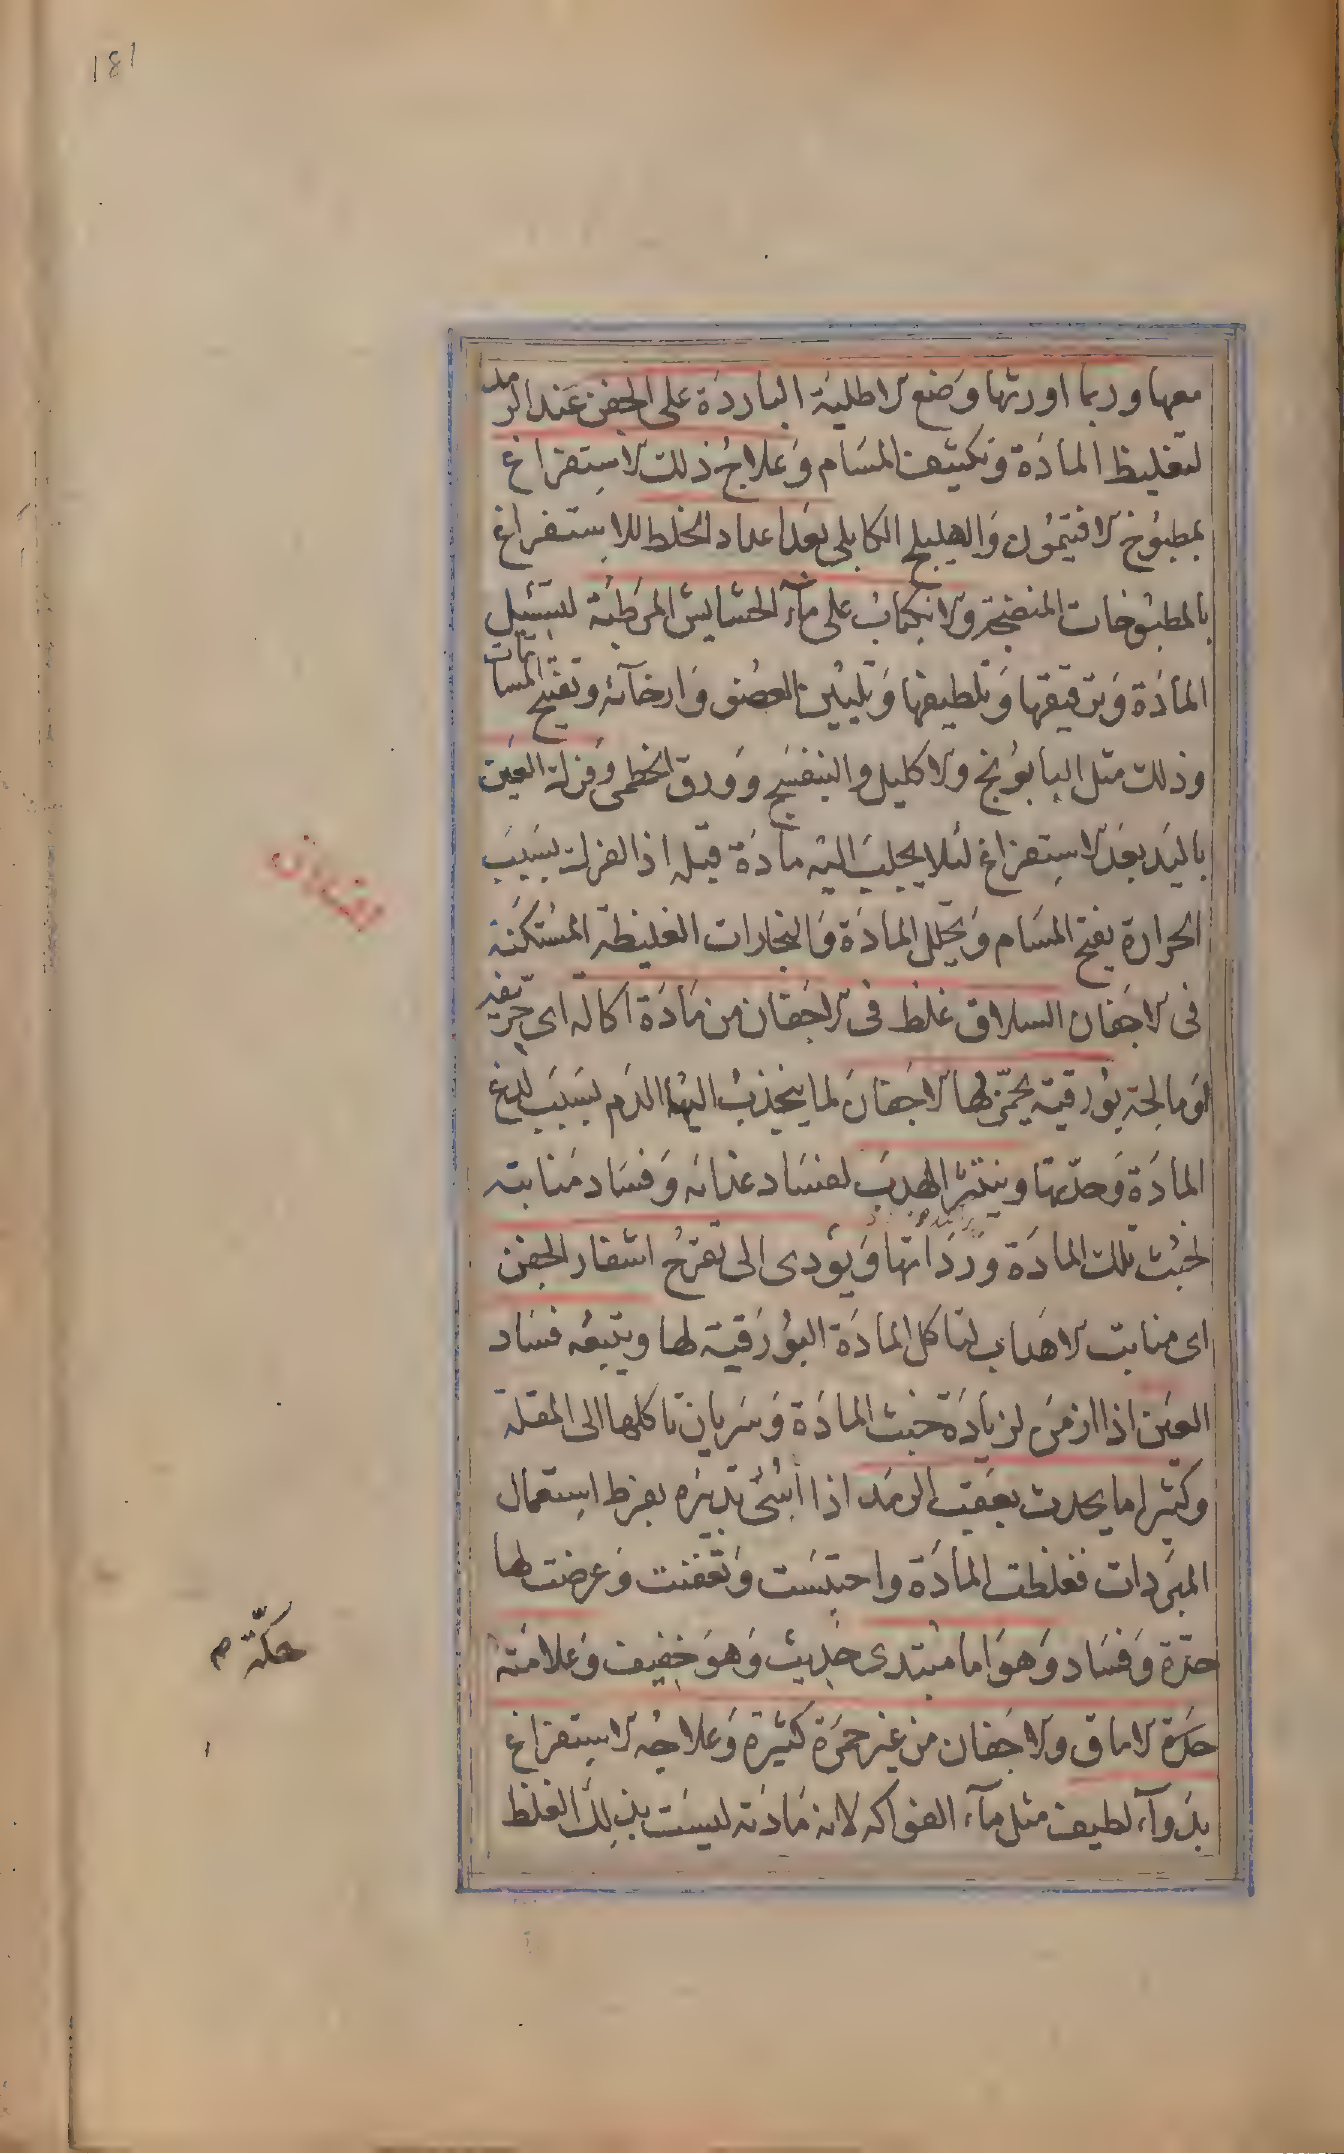 ١٤١
معها وربما اورثها وضع الاطلية الباردة على الجفن عند الرمد
لتغليظ المادة وتكثيف المسام وعلاج ذلك الاستفراغ
بمطبوخ الافتيمون والهليلج الكابلي بعد اعداد الخلط للاستفراغ
بالمطبوخات المنضجة والانكباب على ماء الحشايش المرطبة لتسيل
المادة وترقيقها وتلطيفها وتليين العضو وارخائه وتفتيح المسامات
وذلك مثل البابونج والاكليل والبنفسج وورق الخطمى وفرك العين
باليد بعد الاستفراغ لئلا يجلب اليه مادة قبله اذ الفرك بسبب
الحرارة يفتح المسام ويحلل المادة والبخارات الغليظة المستكنة
فى الاجفان السلاق غلظ فى الاجفان من مادة اكالة اى حريفة
او مالحة بورقية يحمر لها الاجفان لما ينجذب اليها الدم بسبب لذع
المادة وحدتها وينتثر الهدب لفساد غذائه وفساد منابته
لخبث تلك المادة ورداتها ويؤدى الى تقرح اشفار الجفن
اى منابت الاهداب لتاكل المادة البورقية لها ويتبعه فساد
العين اذا ازمن لزيادة خبث المادة وسريان تاكلها الى المقلة
وكثيرا ما يحدث بعقب الرمد اذا اسئ تدبيره بفرط استعمال
المبردات فغلظت المادة واحتبست وتعفنت وعرضت لها
حدة وفساد وهو اما مبتدى حديث وهو خفيف وعلامته
حكة الاماق والاجفان من غير حمرة كثيرة وعلاجه الاستفراغ
بدواء لطيف مثل ماء الفواكه لانه مادته ليست بذلك الغلظ
حكّة م